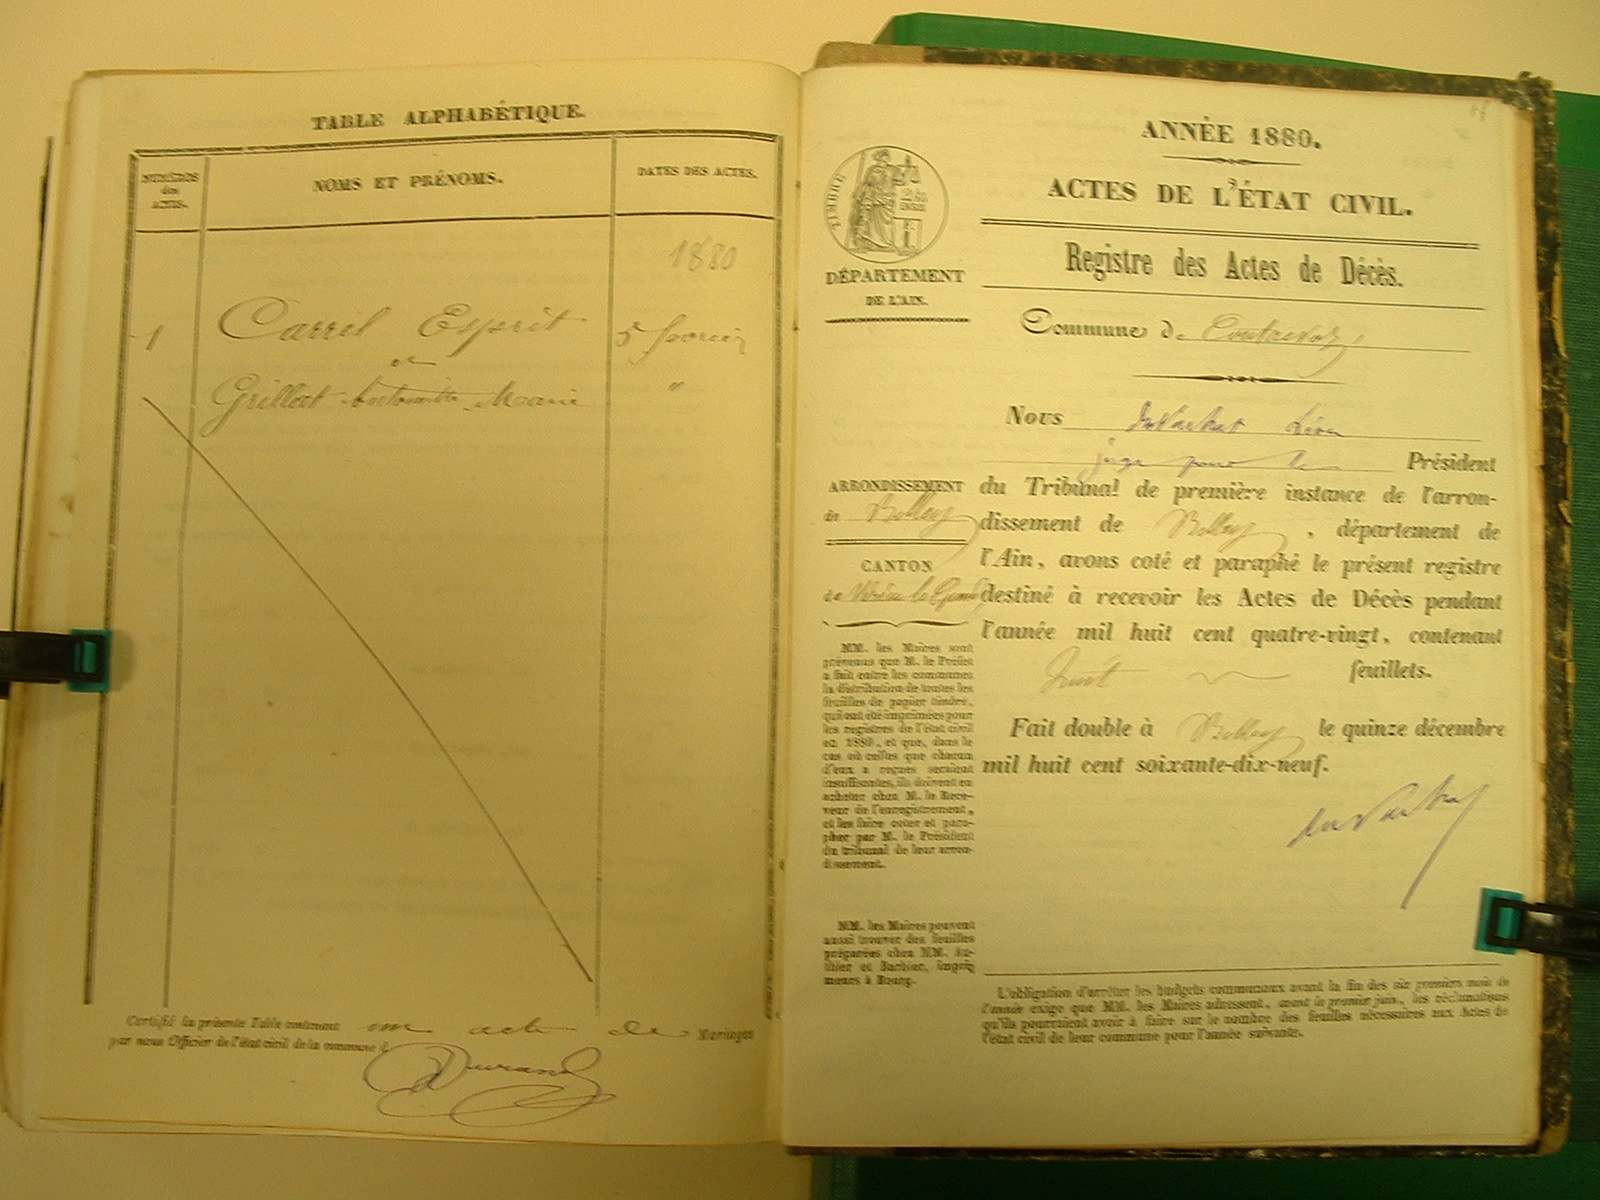 TABLE ALPHABÉTIQUE.
NUMÉROS
des
ACTES.
NOMS ET PRÉNOMS.
DATES DES ACTES.
1880
1
Carrel Esprit
5 février
et
Grillet Antoinette Marie
"
Certifié la présente Table contenant un acte de Mariages
par nous Officier de l'état civil de la commune d
Durand
ANNÉE 1880.
ACTES DE L'ÉTAT CIVIL.
Registre des Actes de Décès.
TIMBRE
DÉPARTEMENT
DE L'AIN.
Commune de Contrevoz
Nous
juge pour le Président
du Tribunal de première instance de l'arron-
dissement de Belley, département de
l'Ain, avons coté et paraphé le présent registre
destiné à recevoir les Actes de Décès pendant
l'année mil huit cent quatre-vingt, contenant
huit feuillets.
Fait double à Belley le quinze décembre
mil huit cent soixante-dix-neuf.
ARRONDISSEMENT
de Belley
CANTON
de Virieu le Grand
MM. les Maires sont
prévenus que M. le Préfet
a fait entre les communes
la distribution de toutes les
feuilles de papier timbré,
qui ont été imprimées pour
les registres de l'état civil
en 1880, et que, dans le
cas où celles que chacun
d'eux a reçues seraient
insuffisantes, ils doivent en
acheter chez M. le Rece-
veur de l'enregistrement,
et les faire coter et para-
pher par M. le Président
du tribunal de leur arron-
dissement.
MM. les Maires peuvent
aussi trouver des feuilles
préparées chez MM. Au-
thier et Barbier, impri-
meurs à Bourg.
L'obligation d'arrêter les budgets communaux avant la fin des six premiers mois de
l'année exige que MM. les Maires adressent, avant le premier juin, les réclamations
qu'ils pourraient avoir à faire sur le nombre des feuilles nécessaires aux Actes de
l'état civil de leur commune pour l'année suivante.